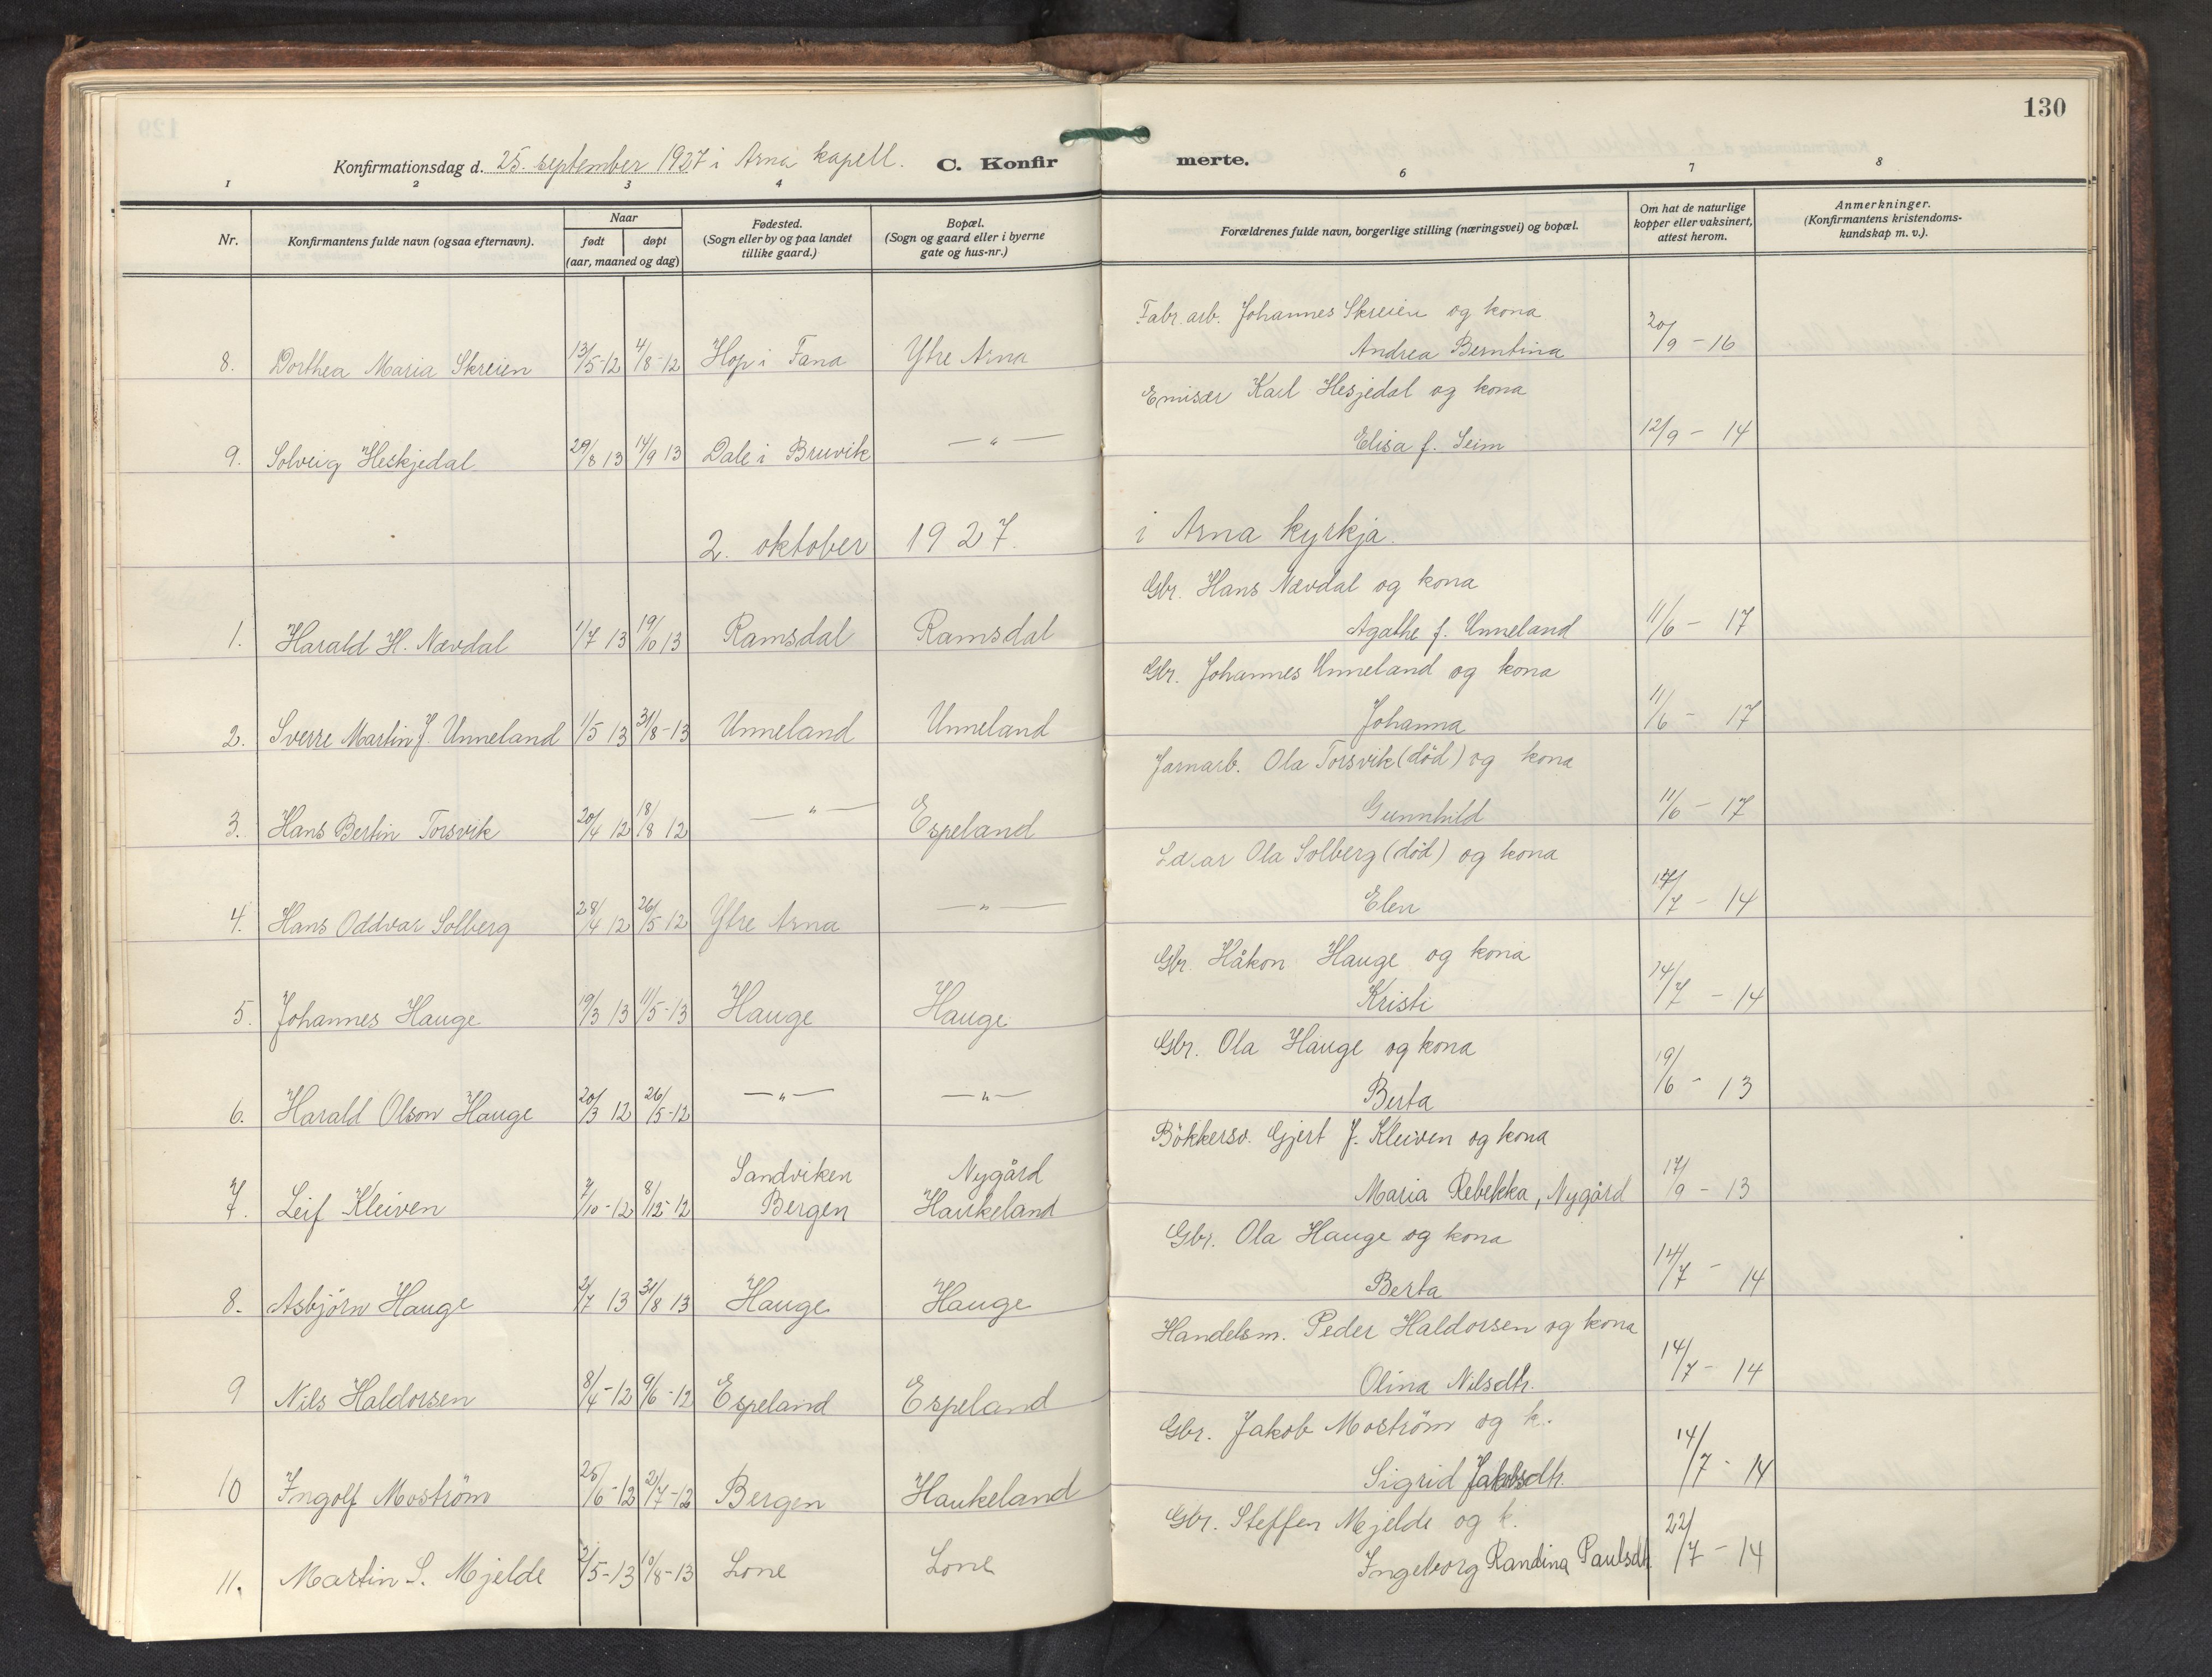 130
Konfirmationsdag d. 25. september 1927 i Arna kapell. C. Konfirmerte.
1 2 3 4 6 7 8
Nr.
Konfirmantens fulde navn (ogsaa efternavn).
Naar
født døpt
(aar, maaned og dag)
Fødested.
(Sogn eller by og paa landet
tillike gaard.)
Bopæl.
(Sogn og gaard eller i byerne
gate og hus-nr.)
Forældrenes fulde navn, borgerlige stilling (næringsvei) og bopæl.
Om hat de naturlige
kopper eller vaksinert,
attest herom.
Anmerkninger.
(Konfirmantens kristendoms-
kundskap m. v.).
Fabr. arb. Johannes Skreien og kona
8. Dorthea Maria Skreien 13/5-12 4/8-12 Hop i Fana Ytre Arna Andrea Berntina 20/9 - 16
Emisær Karl Hesjedal og kona
9. Solveig Heskjedal 29/8 13 14/9 13 Dale i Bruvik —"— Elisa f. Seim 12/9 - 14
2. oktober 1927. i Arna kyrkja.
Gbr. Hans Nævdal og kona
1. Harald H. Nævdal 1/7 13 19/10 13 Ramsdal Ramsdal Agathe f. Unneland 11/6 - 17
Gbr. Johannes Unneland og kona
2. Sverre Martin J. Unneland 1/5 13 31/8-13 Unneland Unneland Johanna 11/6 - 17
Jarnarb. Ola Torsvik (död) og kona
3. Hans Bertin Torsvik 20/4 12 18/8 12 —"— Espeland Gunnhild 11/6 - 17
Ola Solberg (död) og kona
4. Hans Oddvar Solberg 28/4 12 26/5 12 Ytre Arna —"— Elen 14/7 - 14
Gbr. Håkon Hauge og kona
5. Johannes Hauge 19/3 13 11/5-13 Hauge Hauge Kristi 14/7 - 14
Gbr. Ola Hauge og kona
6. Harald Olson Hauge 20/3 12 26/5-12 —"— —"— Berta 19/6 - 13
Bökkersv. Gjert J. Kleiven og kona
Sandviken Nygård
7. Leif Kleiven 7/10-12 8/12-12 Bergen Haukeland Maria Rebekka, Nygård 17/9 - 13
Gbr. Ola Hauge og kona
8. Asbjörn Hauge 2/7 13 31/8 13 Hauge Hauge Berta 14/7 - 14
Handelsm. Peder Haldorsen og kona
9 Nils Haldorsen 8/4-12 9/6-12 Espeland Espeland Olina Nilsdtr. 14/7 - 14
Gbr. Jakob Moström og k.
10 Ingolf Moström 25/6-12 21/7-12 Bergen Haukeland Sigrid Jakobsdtr. 14/7 - 14
Gbr. Steffen Mjelde og k.
11. Martin S. Mjelde 2/5-13 10/8-13 Lone Lone Ingeborg Randina Paulsdtr. 22/7 - 14